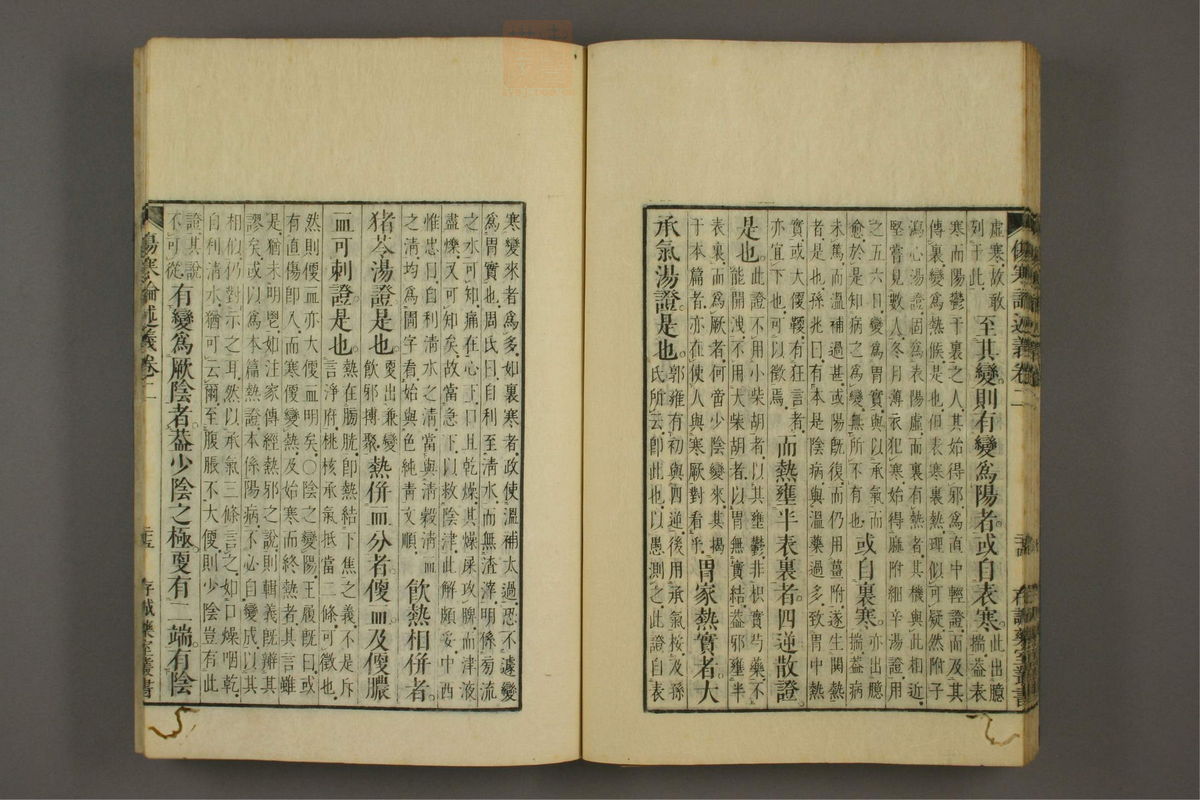 虛寒,故敢
列于此.
至其變,則有變爲陽者,或自表寒.
此出臆
揣,蓋表
寒而陽鬱于裏之人,其始得邪,爲直中輕證,而及其
傳裏變爲熱候是也,但表寒裏熱,理似可疑,然附子
瀉心湯證,固爲表陽虛而裏有熱者,其機與此相近,
堅嘗見數人,冬月薄衣犯寒,始得麻附細辛湯證,用
之五六日,變爲胃實,與以承氣而
愈,於是知病之爲變,無所不有也.
或自裏寒.
亦出臆
揣,蓋病
未篤,而溫補過甚,或陽旣復,而仍用薑附,遂生關熱
者是也,孫兆曰,有本是陰病,與溫藥過多,致胃中熱
實,或大便鞕,有狂言者,
亦宜下也,可以徵焉.
而熱壅半表裏者,四逆散證.
是也.
此證不用小柴胡者,以其壅鬱,非枳實芍藥,不
能開洩,不用大柴胡者,以胃無實結,蓋邪壅半
表裏,而爲厥者,何啻少陰變來,其揭
于本篇者,亦在使人與寒厥對看乎.
胃家熱實者,大
承氣湯證,是也.
郭雍有初與四逆後用承氣按,及孫
氏所云,卽此也,以愚測之,此證自表
傷寒論述義卷二
存誠藥室叢書
寒變來者爲多,如裏寒者,政使溫補太過,恐不遽變
爲胃實也,周氏曰,自利至清水,而無渣滓,明係旁流
之水可知,痛在心下,口且乾燥,其燥屎攻脾,而津液
盡爍,又可知矣,故當急下,以救陰津,此解頗妥,中西
惟忠曰,自利清水之清,當與清穀清血
之清,均爲圊字看,始與色純靑文順.
飮熱相併者.
猪苓湯證是也.
更出兼變
飮邪搏聚
熱併血分者.便血及便膿
血可刺證是也.
熱在膀胱,卽熱結下焦之義,不是斥
言淨府,桃核承氣抵當二條可徵也,
然則便血亦大便血明矣,○陰之變陽,王履旣曰,或
有直傷卽入,而寒便變熱,及始寒而終熱者,其言雖
是,猶未明鬯,如注家傳經熱邪之說,則輯義旣辨其
謬矣,或以爲本篇熱證本係陽病,不必自變成,以其
相似,仍對示之耳,然以承氣三條言之,如口燥咽乾,
自利清水,猶可云爾,至腹脹不大便,則少陰豈有此
證,其說
不可從.
有變爲厥陰者.蓋少陰之極.更有二端.有陰
傷寒論述義卷二
存誠藥室叢書